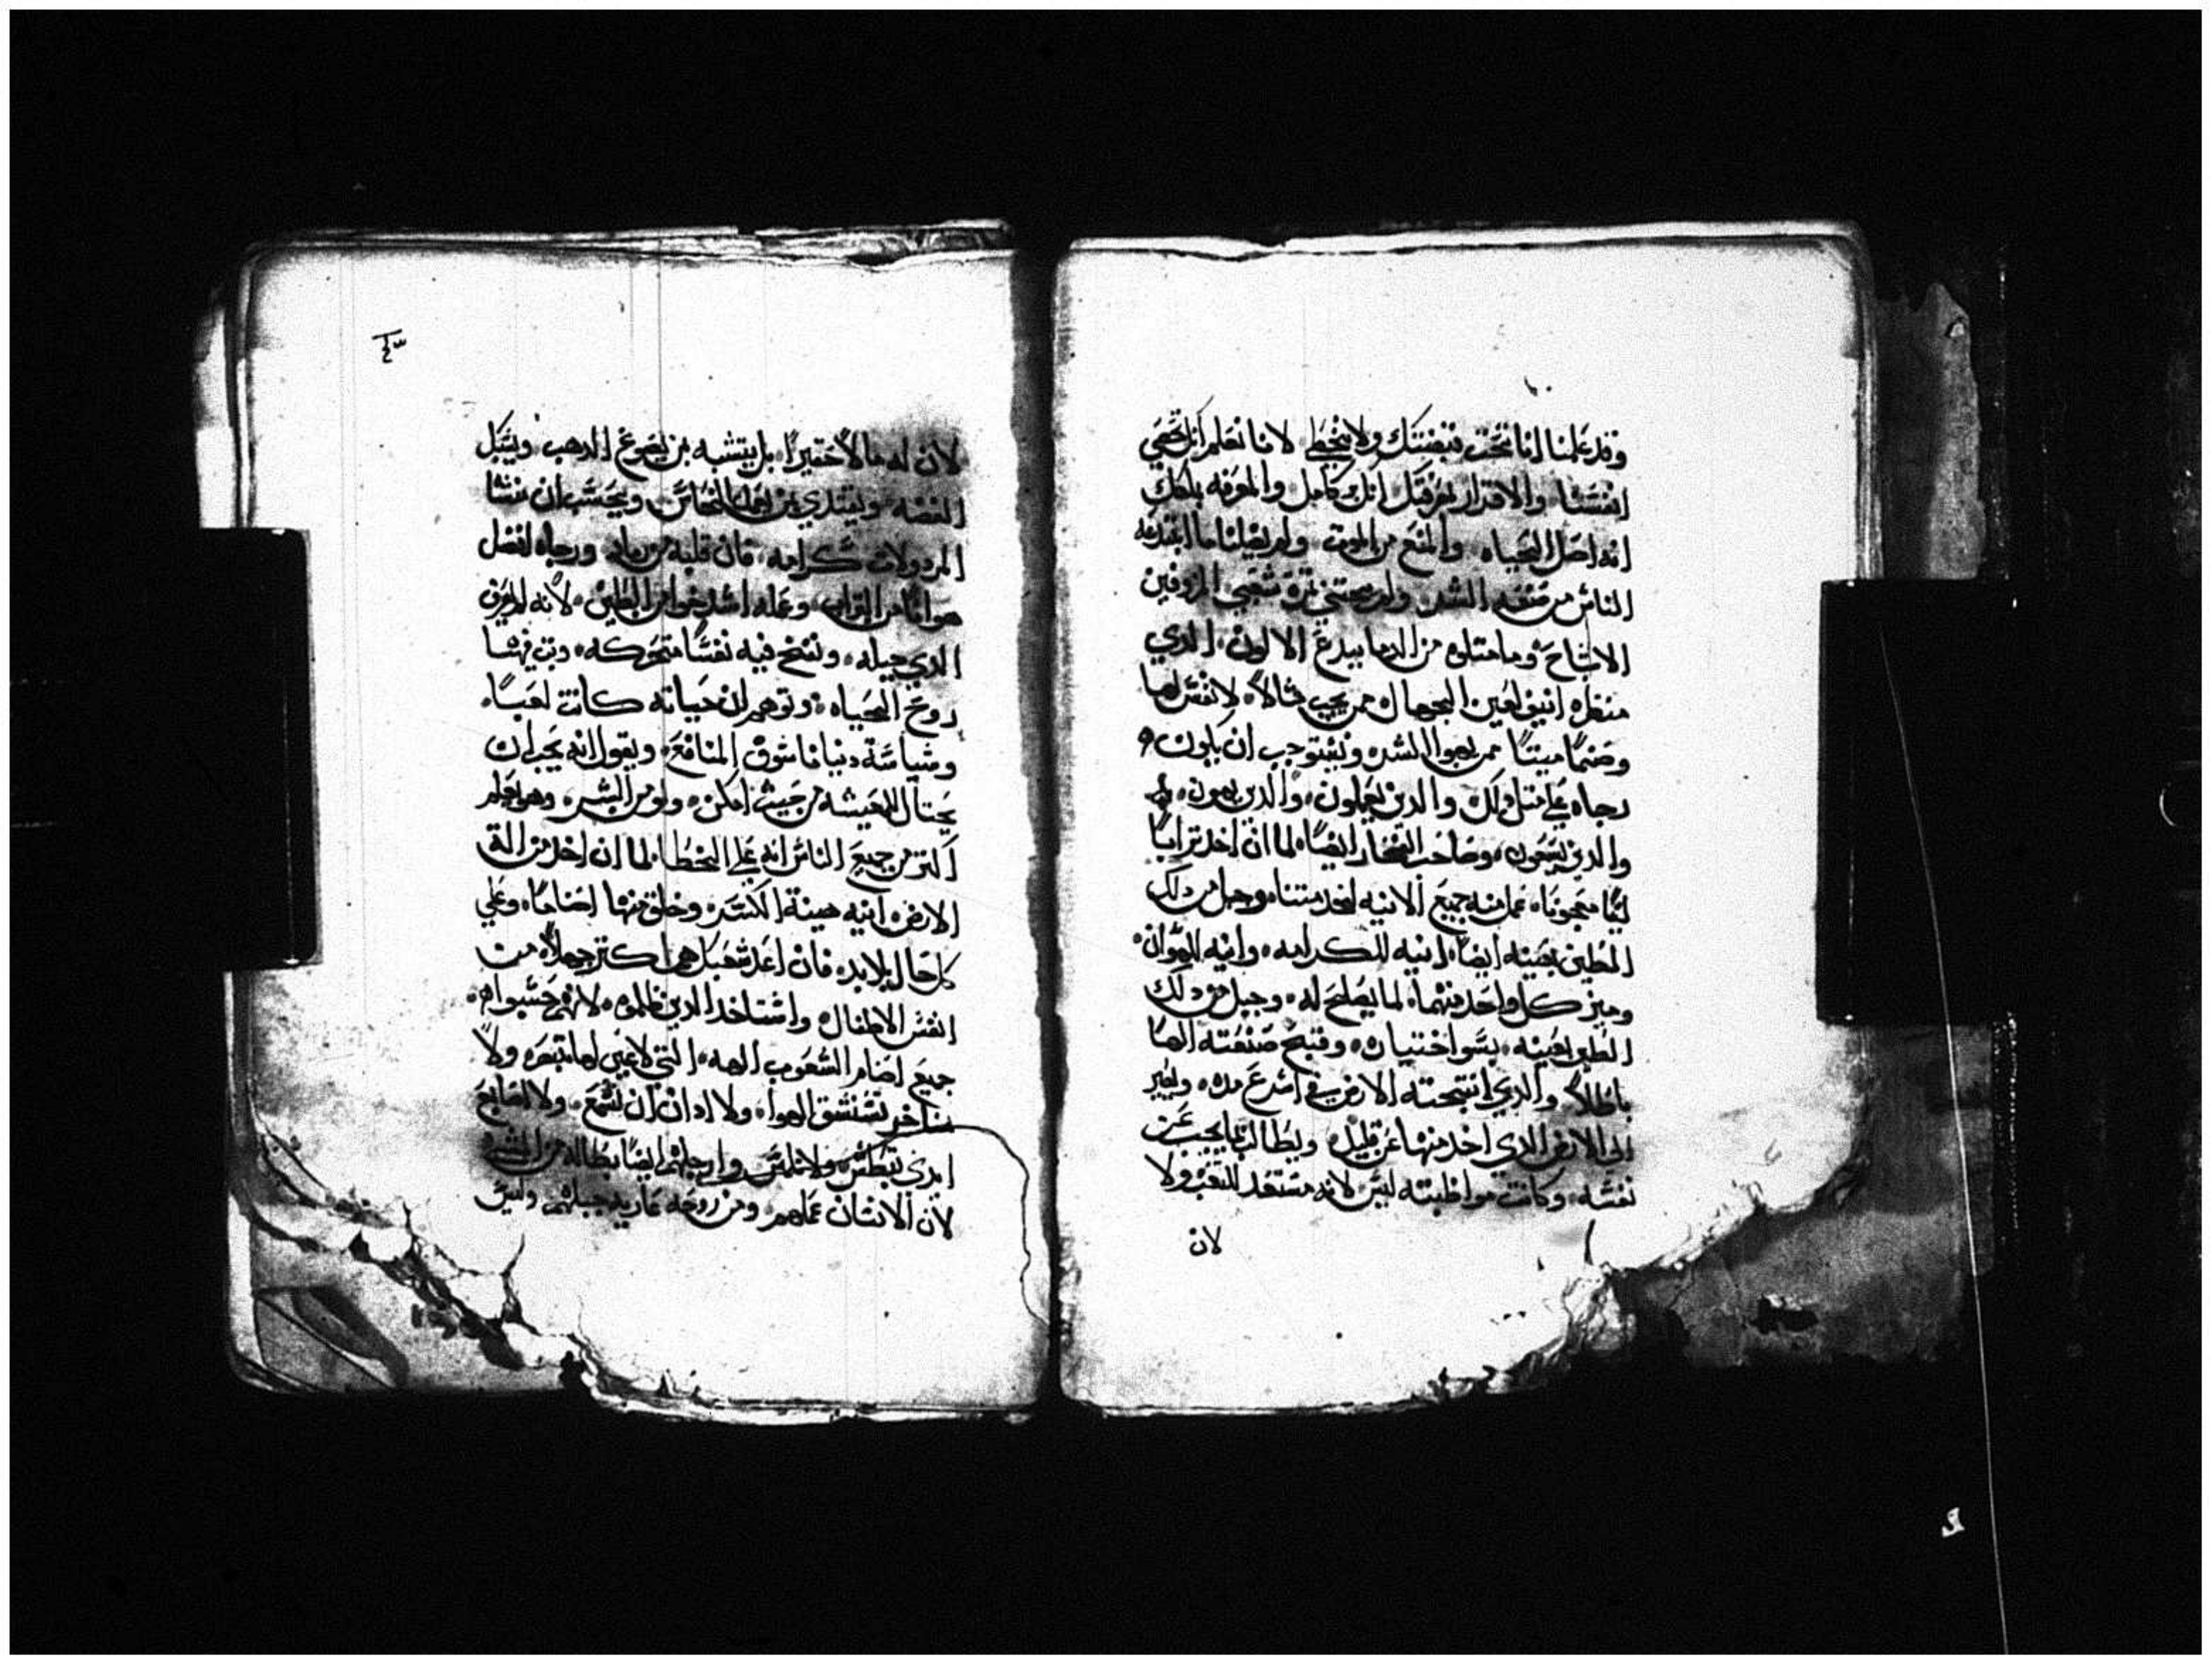 وقد علمنا اننا تحت قبضتك ولا نخطي لانا نعلم انك تحصي
انفسنا والاقرار بمعرفتك انك كامل والمعرفه بملكك
انه اصل الحياه والمنع من الموت ولم يضلنا ما ابتدعه
الناس من صنعه الشر ولم
الاشباح وما مثلوه من الدما ببدع الالوان الدي
منظره انيق لعين الجهال ممن يجب مثالاً لا نفس لها
وصنماً ميتاً ممن يهوا الشر ويستوجب ان يكون
رجاه على مثل ذلك والدين يعملون والدين يهون
والدين يسعون وصاحب الفخار ايضاً لما ان اخد تراباً
ليناً معجوناً عمل منه جميع الانيه لخدمتنا وجبل من دلك
الطين بعينه ايضاً انيه للكرامه وانيه للهوان
وميز كل واحد منهما لما يصلح له وجبل من دلك
الطين بعينه بسو اختياره وقبح صنعته الهاً
باطلاً والدي انتجته الارض في اسرع مده ويصير
الى الارض الدي اخد منها عن قليل ويطالب بما يجب عن
نفسه وكانت مواظبته ليس لانه مستعد للتعب ولا
لان
٤٣
لان له عمراً حقيراً بل يتشبه بمن يصوغ الدهب ويسبك
الفضه ويقتدي بمن يعمل النحاس ويحسب ان منشا
المردولات كرامه فان قلبه من رماد ورجاه افضل
هواناً من التراب وعمله اشد هوانا من الطين لانه لم يعرف
الدي جبله ونفخ فيه نفساً متحركه وبث فيها
روح الحياه وتوهم ان حياته كانت لعباً
وسياسة دنيانا سوق المنافع ويقول انه يجب ان
يحتال للمعيشه من حيث امكن ولو من الشر وهو يعلم
اكتر من جميع الناس انه على الخطا لما ان اخد من الة
الارض انيه هينة الكسر وخلق منها اصناماً وعلى
كل حال لابد فان اعد شعبك هم اكتر جهلاً من
انفس الاطفال واستاخدا الدين ظلموه لانهم حسبوا
جميع اصنام الشعوب الهه التي لا عين لها تبصر ولا
مناخر تستنشق الهوا ولا ادان ان تسمع ولا اصابع
ايدي تبطش ولا تلمس وارجلهم ايضاً بطاله من المشي
لان الانسان عملهم ومن روحه عاريه جبلهم وليس